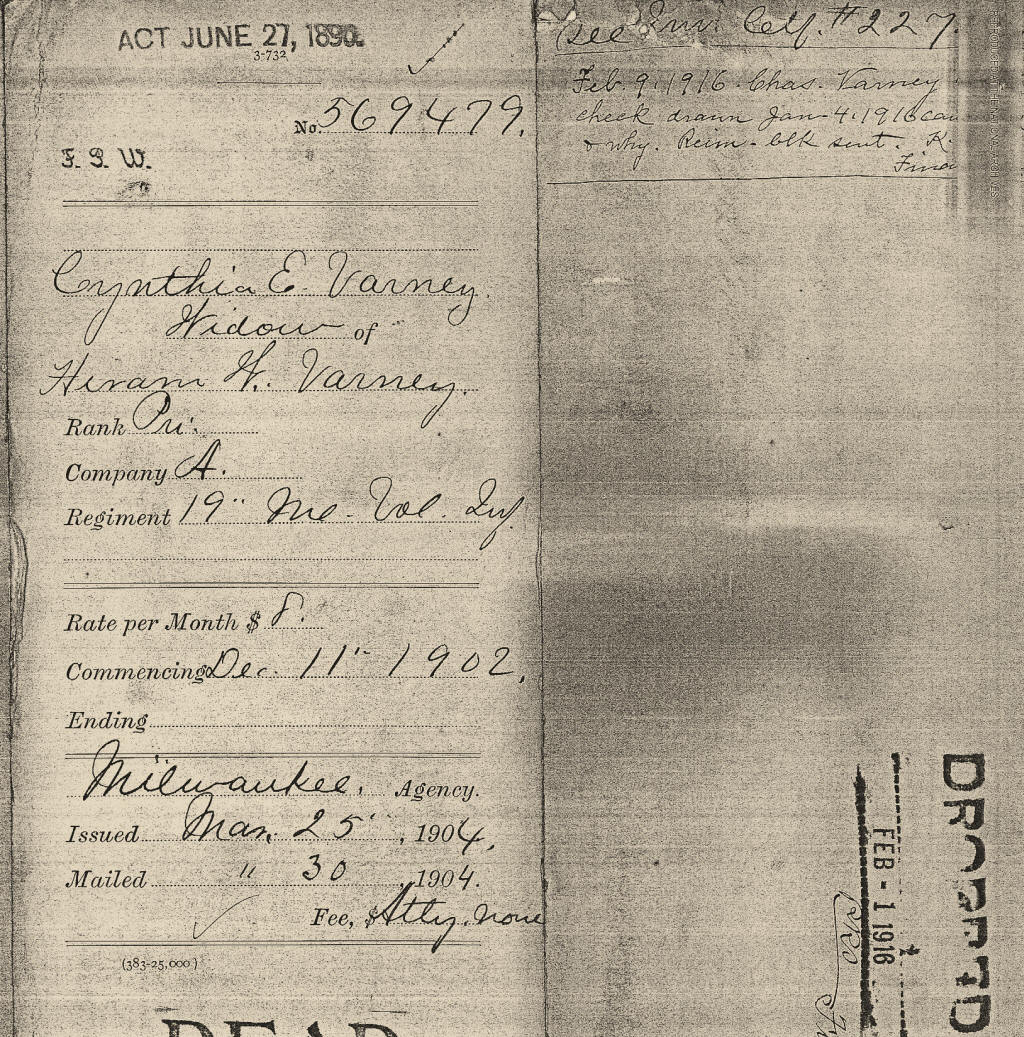 ACT JUNE 27, 1890.
3-732
No. 569479.
F. G. W.
Cynthia E. Varney.
Widow of
Hiram W. Varney.
Rank Pri.
Company A.
Regiment 19" Me. Vol. Inf.
Rate per Month $ 8.
Commencing Dec. 11" 1902,
Ending
Milwaukee, Agency.
Issued Mar. 25", 1904,
Mailed " 30, 1904.
Fee, $ Atty. none
(383-25,000)
DEAD
See Inv. Ctf. # 227.
Feb. 9, 1916. Chas. Varney
check drawn Jan. 4, 1916 can
& why. Reim. blk sent. K.
DROPPED
FEB - 1 1916